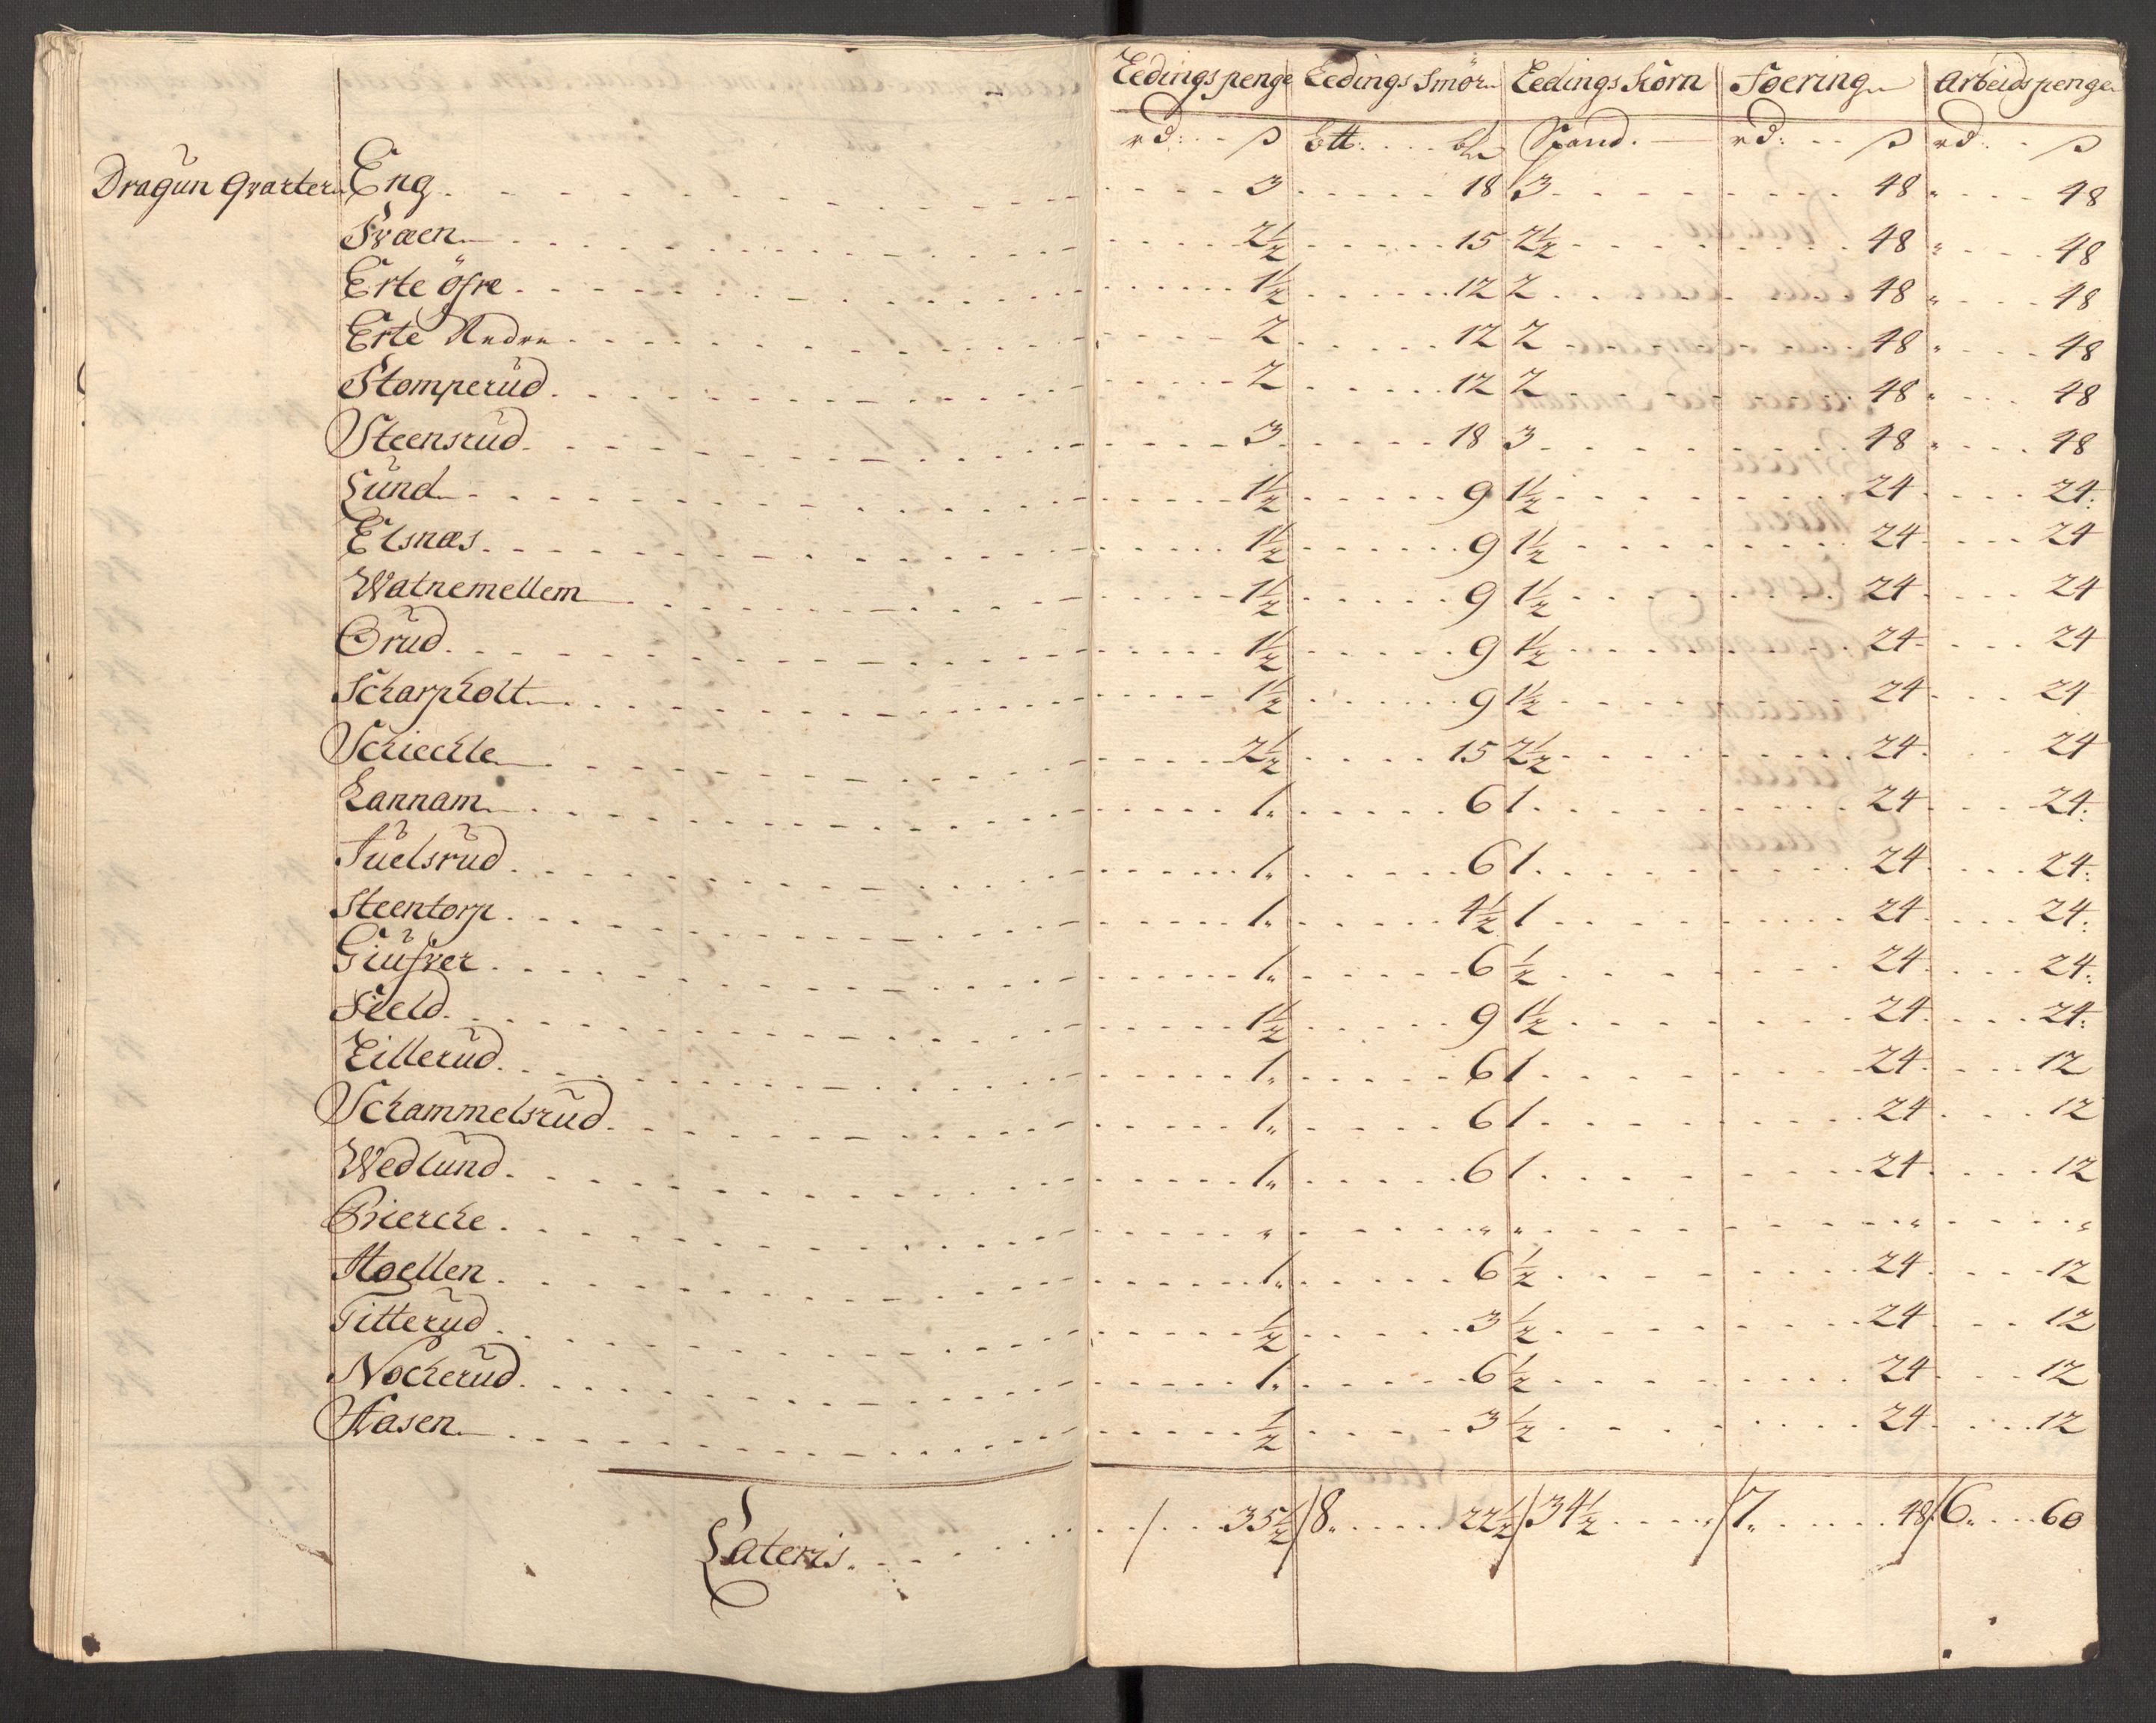 Leedings penge Leedings Smör Leedings Korn Foering Arbeids penge
rd: ß btt: bl Spand. rd: ß rd: ß
Dragun Qvarter Eng 3 18 3 48 " 48
Svaen 2½ 15 2½ 48 " 48
Erte öfre 1½ 12 2 48 " 48
Erte Nedre 2 12 2 48 " 48
Stomperud 2 12 2 48 " 48
Steensrud 3 18 3 48 " 48
Lund 1½ 9 1½ 24 24
Elsnæs 1½ 9 1½ 24 24
Watnemellem 1½ 9 1½ 24 24
Örud 1½ 9 1½ 24 24
Scharpholt 1½ 9 1½ 24 24
Schiechle 2½ 15 2½ 24 24
Lannam 1" 6 1 24 24
Juelsrud 1" 6 1 24 24
Steentorp 1" 4½ 1 24 24
Giufver 1" 6 ½ 24 24
Field 1½ 9 1½ 24 24
Lillerud 1" 6 1 24 12
Schammelsrud 1" 6 1 24 12
Wedlund 1" 6 1 24 12
Bierche " " " " "
Moellen 1" 6 ½ 24 12
Titterud ½ 3 ½ 24 12
Nocherud 1" 6 ½ 24 12
Aasen ½ 3 ½ 24 12
Lateris 35½ 8" 22½ 34½ 7" 48 6" 60